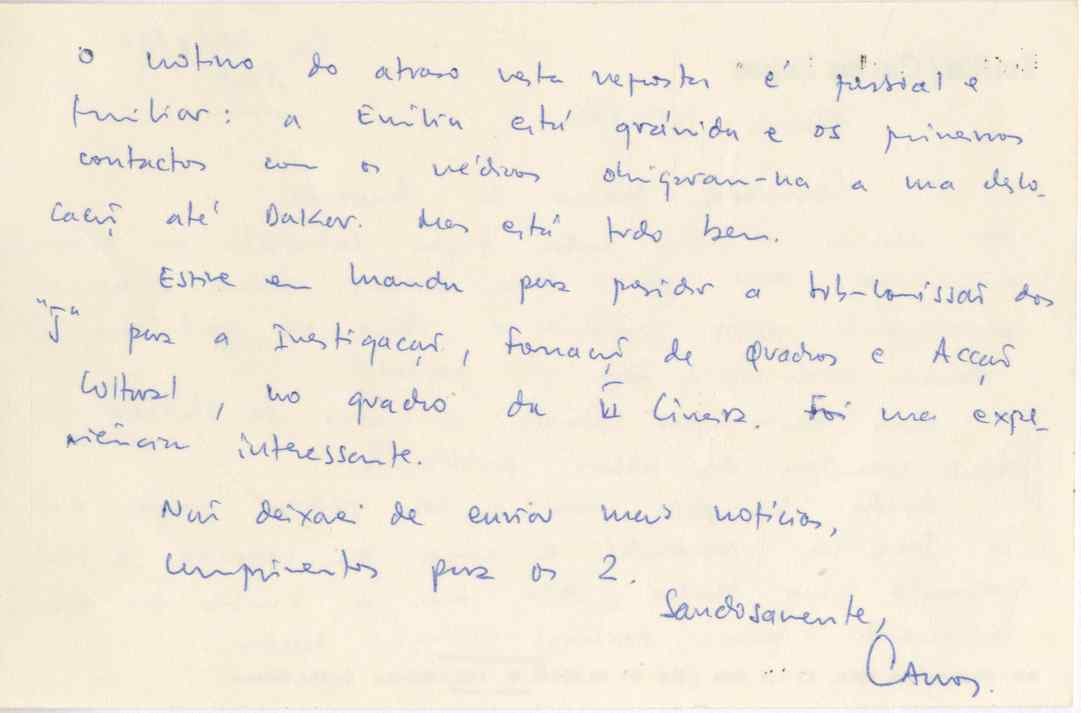 O motivo do atraso nesta resposta é pessoal e
familiar: a Emília está grávida e os primeiros
contactos com os médicos obrigaram-na a uma deslo-
cação até Dakar. Mas está tudo bem.
Estive em Luanda para presidir a sub-comissão dos
"5" para a Investigação, Formação de Quadros e Acção
Cultural, no quadro da VI Cimeira. Foi uma expe-
riência interessante.
Não deixarei de enviar mais notícias,
Cumprimentos para os 2.
Saudosamente,
Carlos.